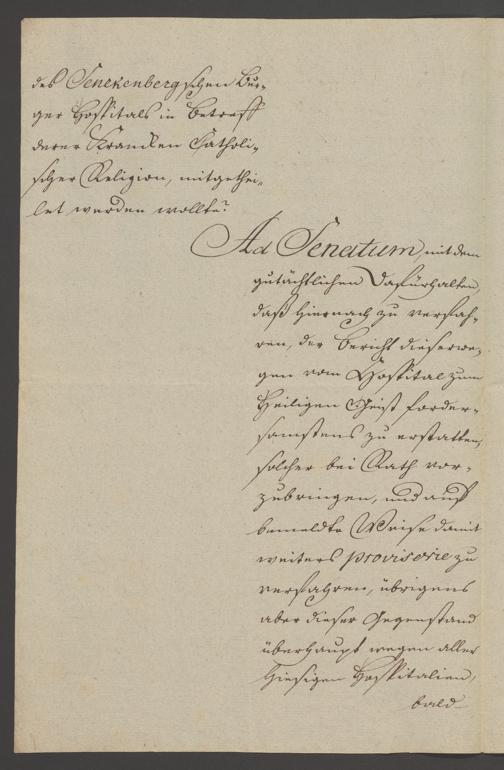 des Senckenbergischen Bur-
ger Hospitals in Betreff
derer Krancken Catholi-
scher Religion, mitgethei-
let werden wollte?
Ad Senatum, mit dem
gutächtlichen Dafürhalten,
daß hiernach zu verfah-
ren, der Bericht dieserwe-
gen vom Hospital zum
Heiligen Geist forder-
samstens zu erstatten,
solcher bei Rath vor-
zubringen, und auf
bemeldte Weise damit
weiters provisorie zu
verfahren, übrigens
aber dieser Gegenstand
überhaupt wegen aller
hiesigen Hospitalien,
bald